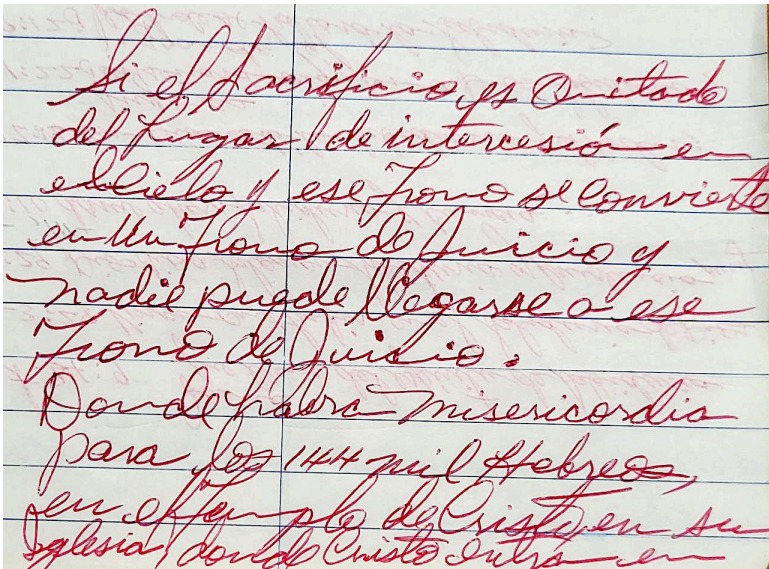 Si el Sacrificio es Quitado
del Lugar de intercesión en
el Cielo y ese Trono se Convierte
en Un Trono de Juicio y
nadie puede llegarse a ese
Trono de Juicio.
Donde habra misericordia
para los 144 mil Hebreos,
en el Templo de Cristo, en su
Iglesia, donde Cristo entra en